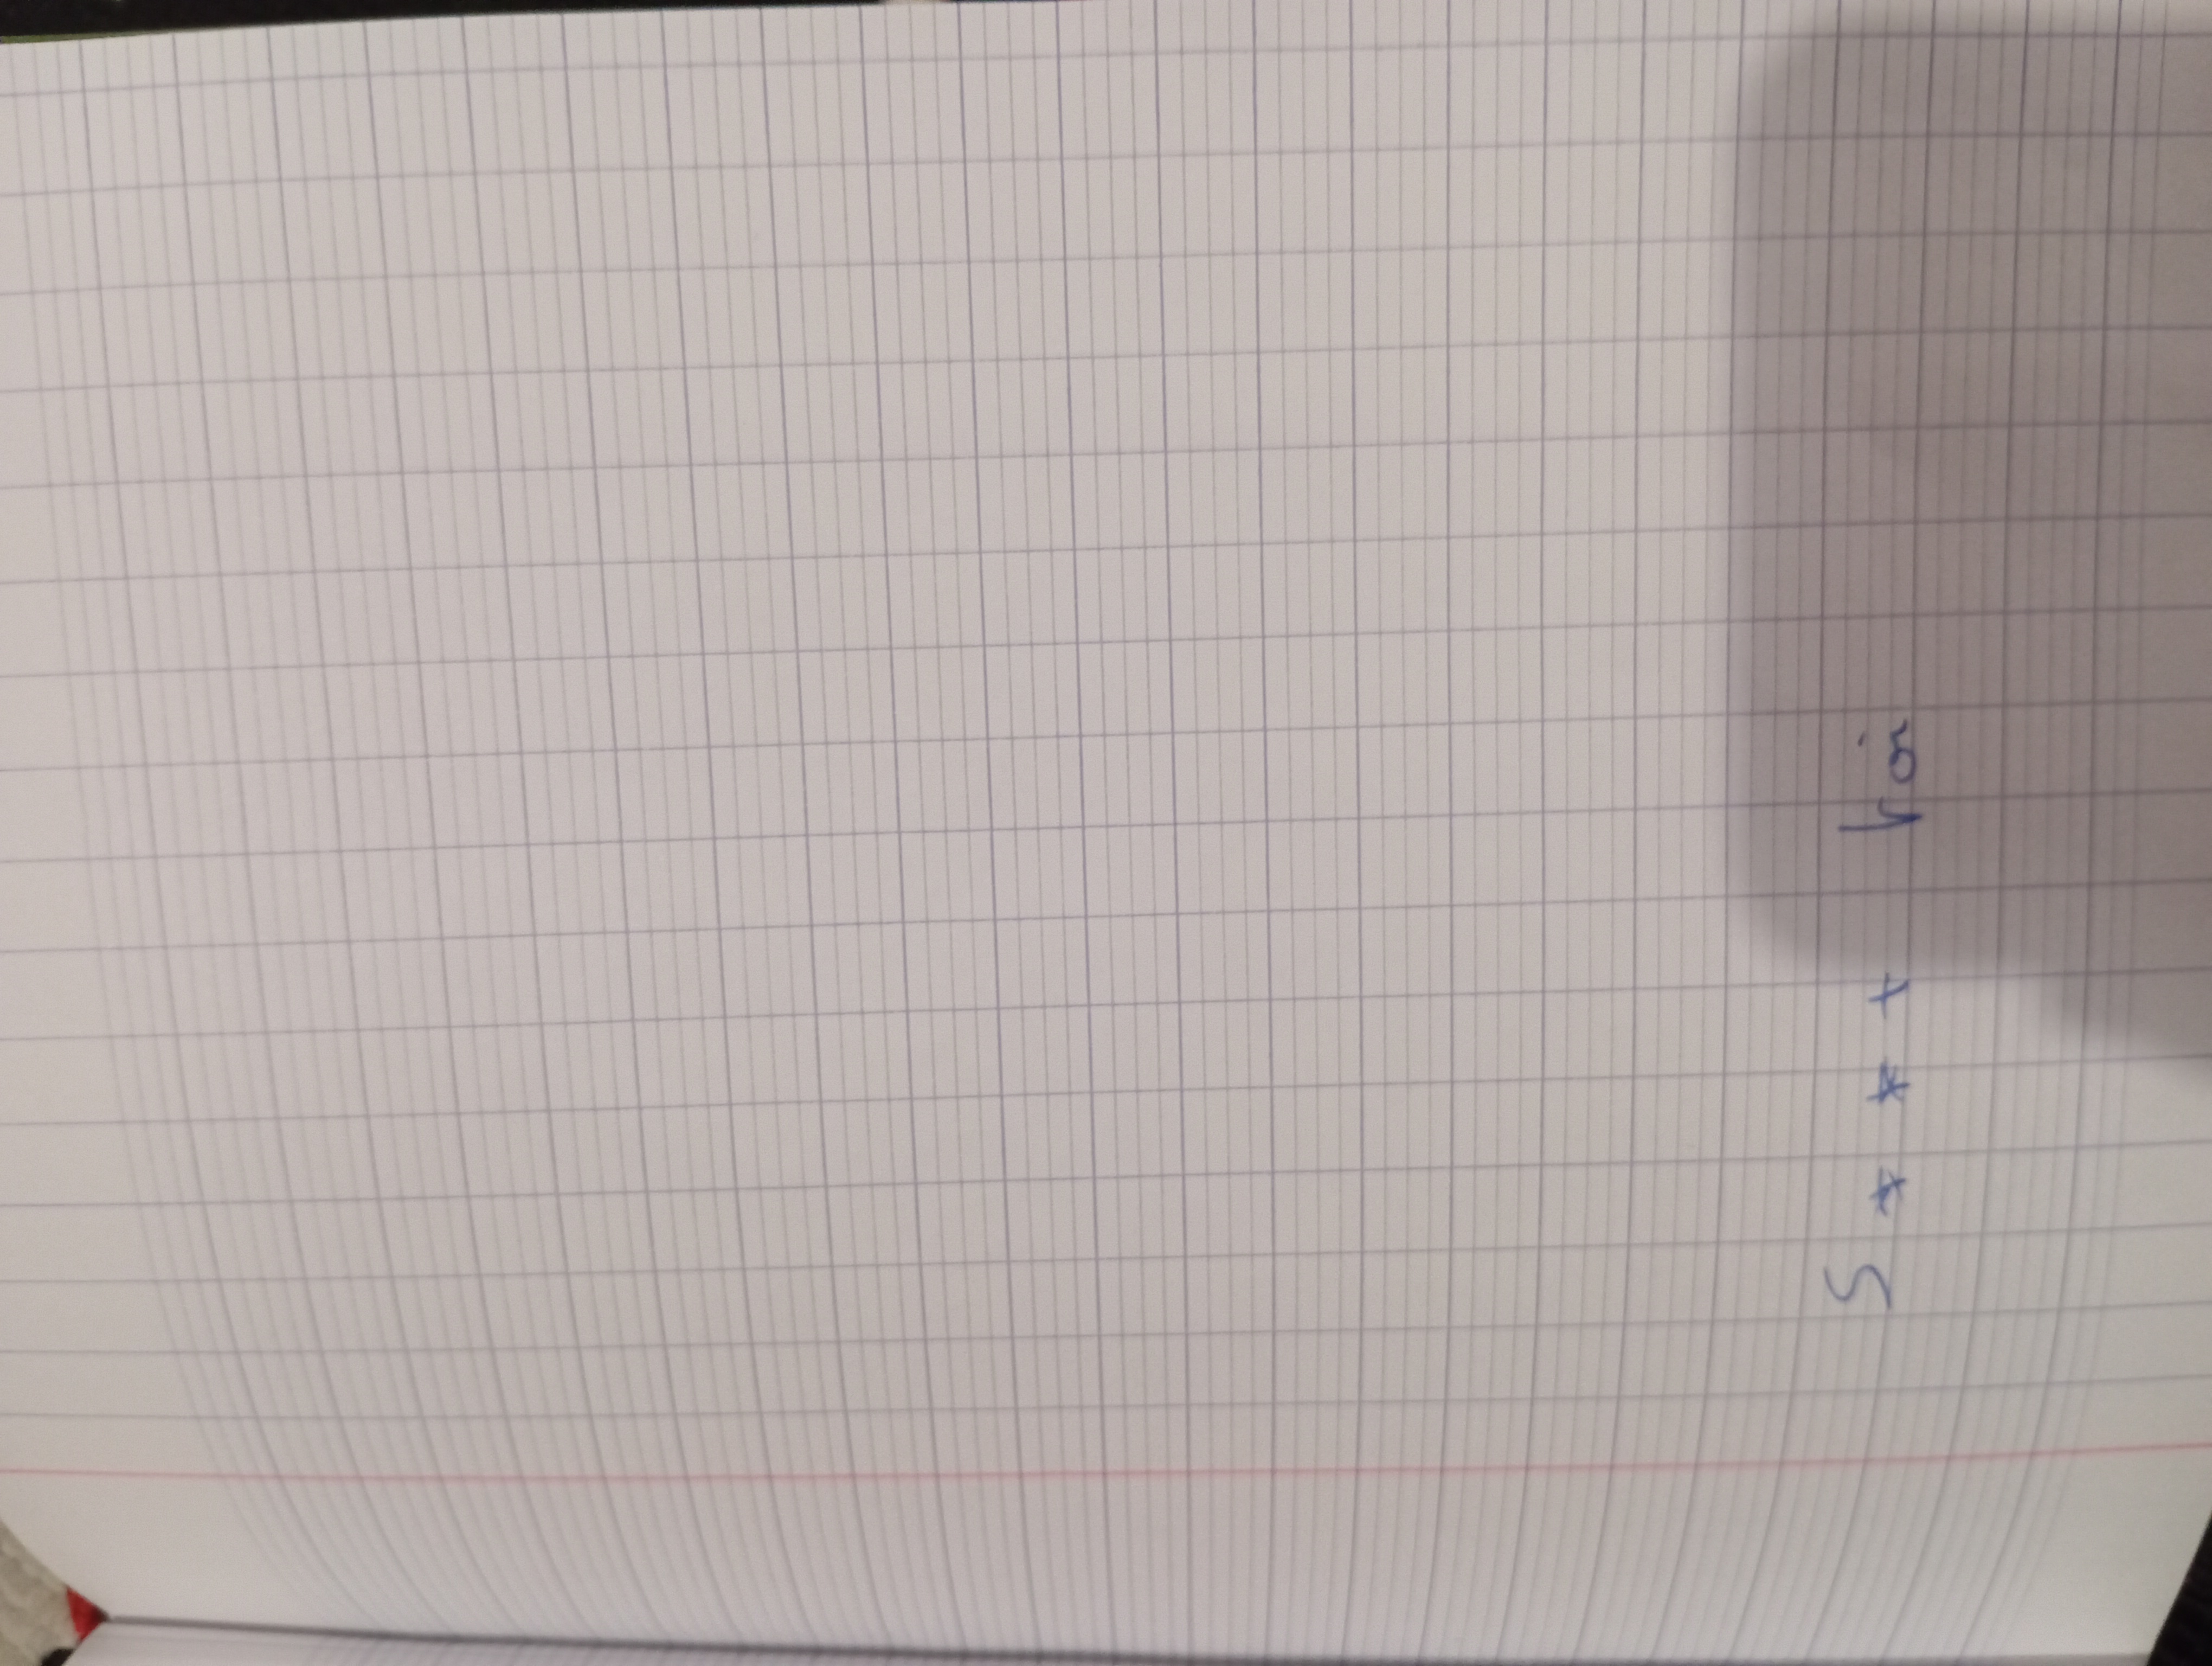 S * * + toi